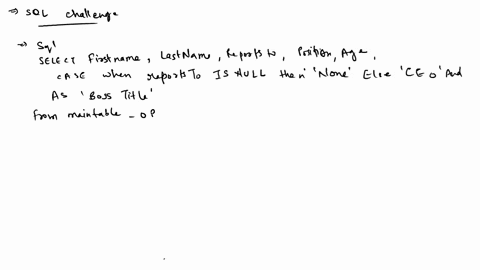 ⇒ SQL challenge
→ Sql
SELECT Firstname, LastName, Reports to, Position, Age,
CASE when reportsTo IS NULL then 'None' Else 'CEO' And
As 'Boss Title'
From maintable_OP